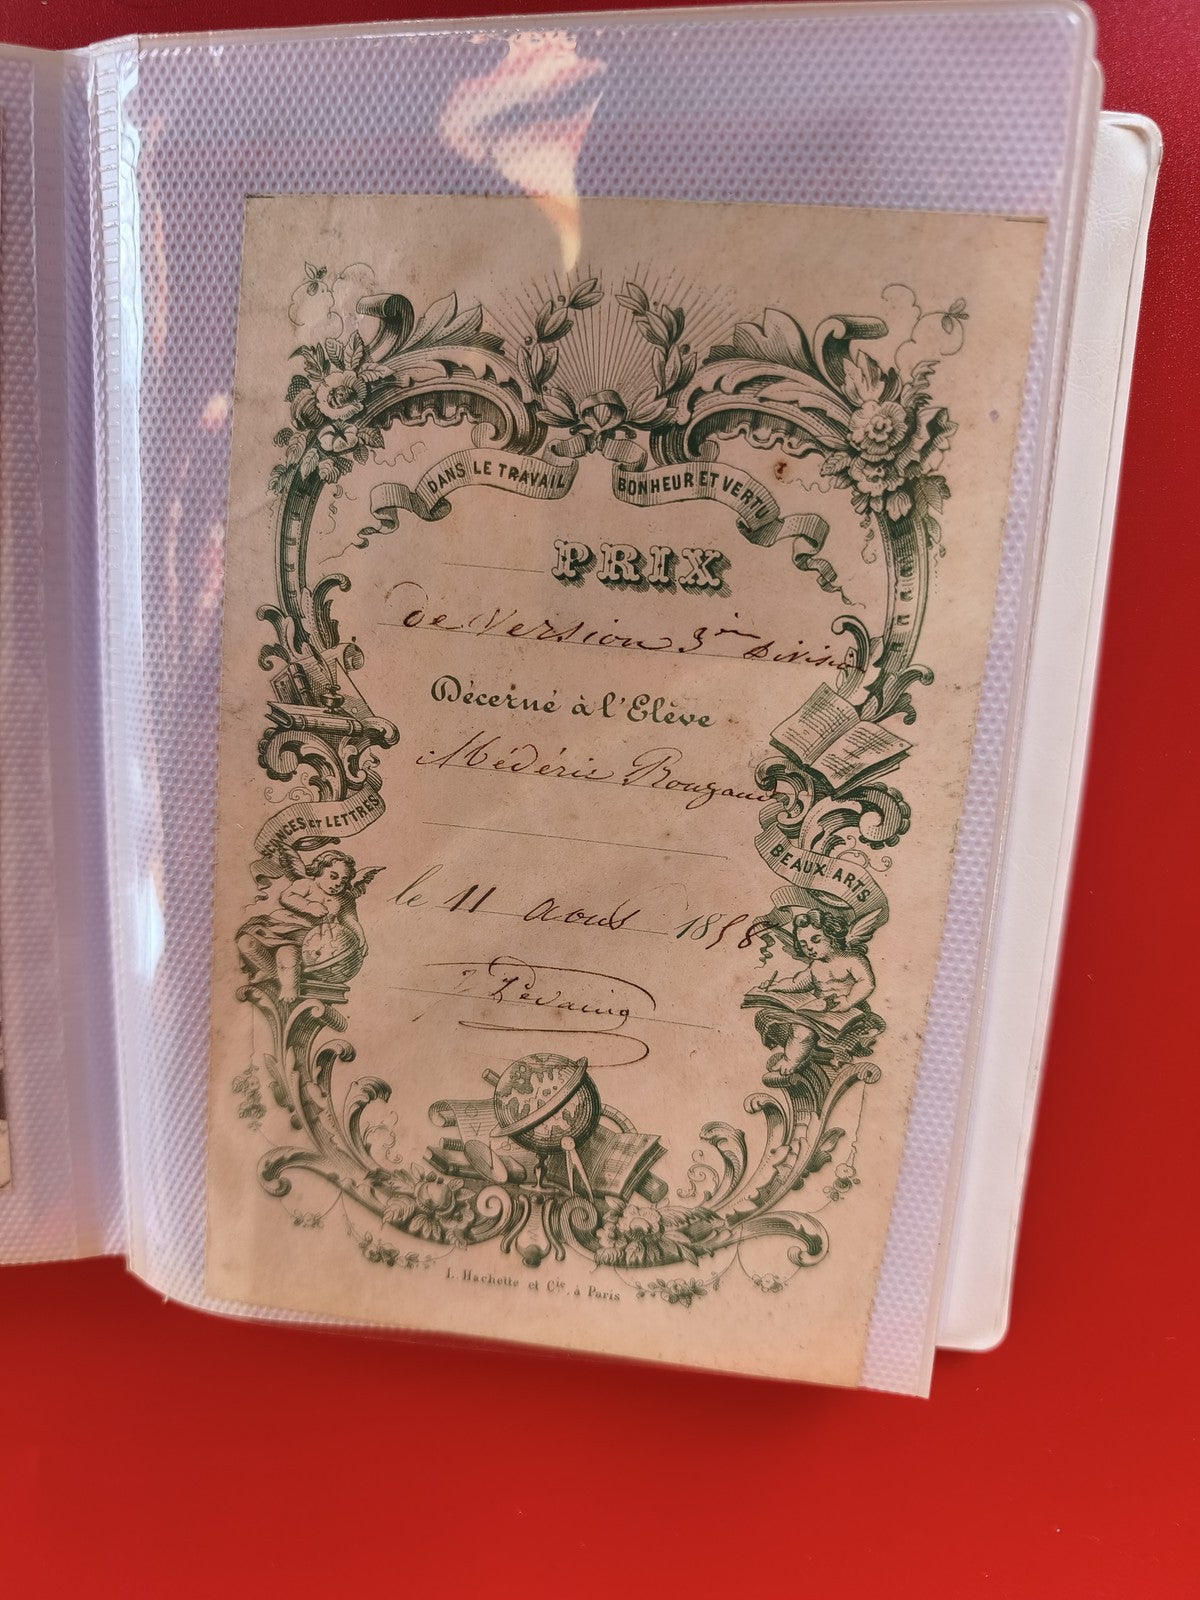 DANS LE TRAVAIL BONHEUR ET VERTU
PRIX
de Version 3ème Division
Décerné à l'Elève
Médéric Rougaud
SCIENCES ET LETTRES
BEAUX ARTS
le 11 Aout 1858
L. Hachette et Cie. à Paris